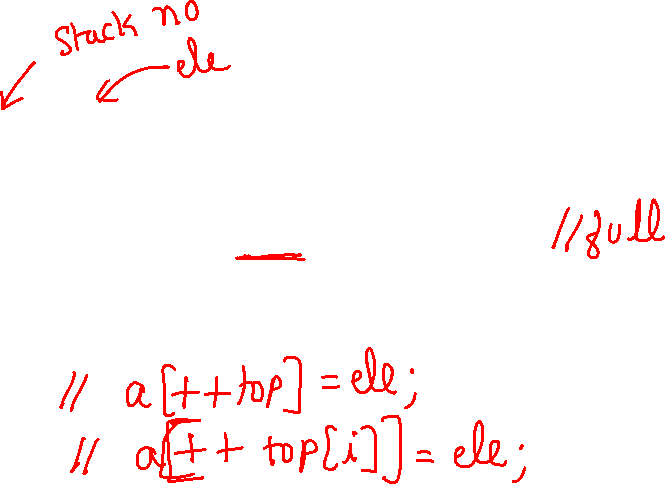 Stack no
ele
//full
// a[++top] = ele;
// a[++ top[i]] = ele;